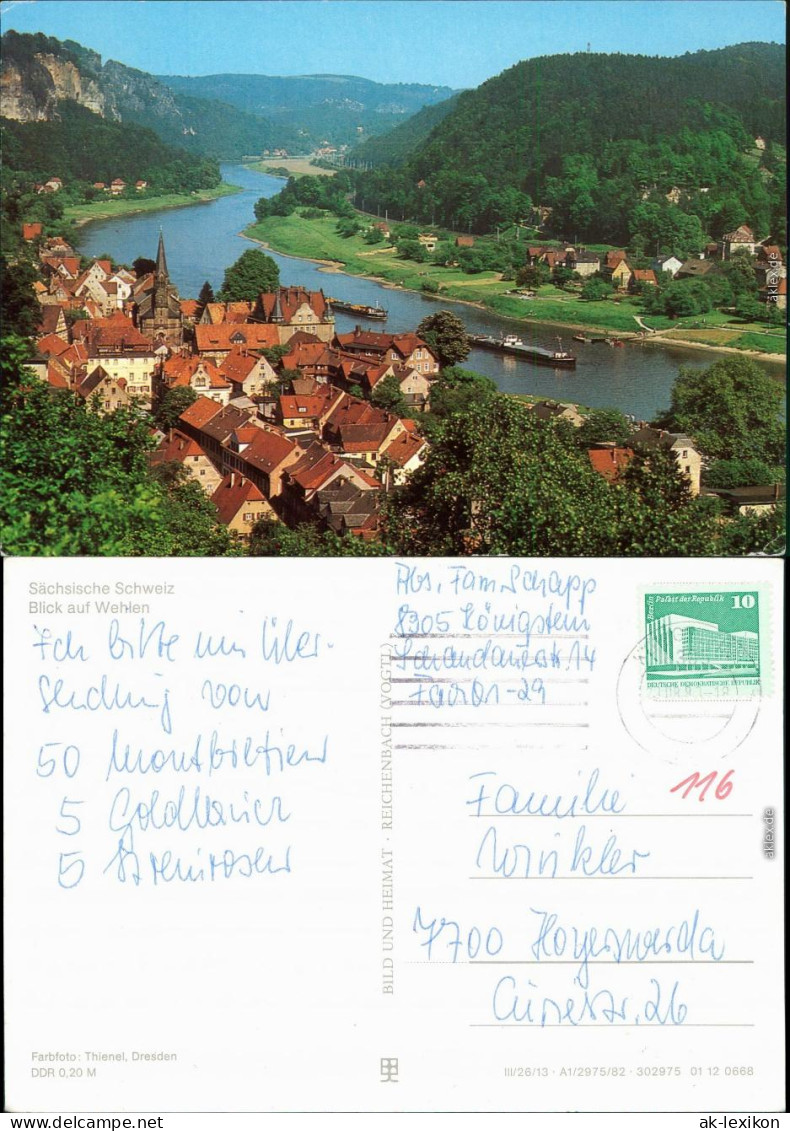 Sächsische Schweiz
Blick auf Wehlen
Ich bitte um Über-
sendung von
50 Montbretien
5 Goldlauer
5
Abs. Fam. Schapp
8305 Königstein
14
BILD UND HEIMAT · REICHENBACH (VOGTL)
Berlin Palast der Republik 10
DEUTSCHE DEMOKRATISCHE REPUBLIK
116
Familie
Winkler
7700 Hoyerswerda
Curiestr. 26
Farbfoto: Thienel, Dresden
DDR 0,20 M
III/26/13 · A1/2975/82 · 302975 01 12 0668
aklex.de
aklex.de
www.ak-ansichtskarten.de
ak-lexikon